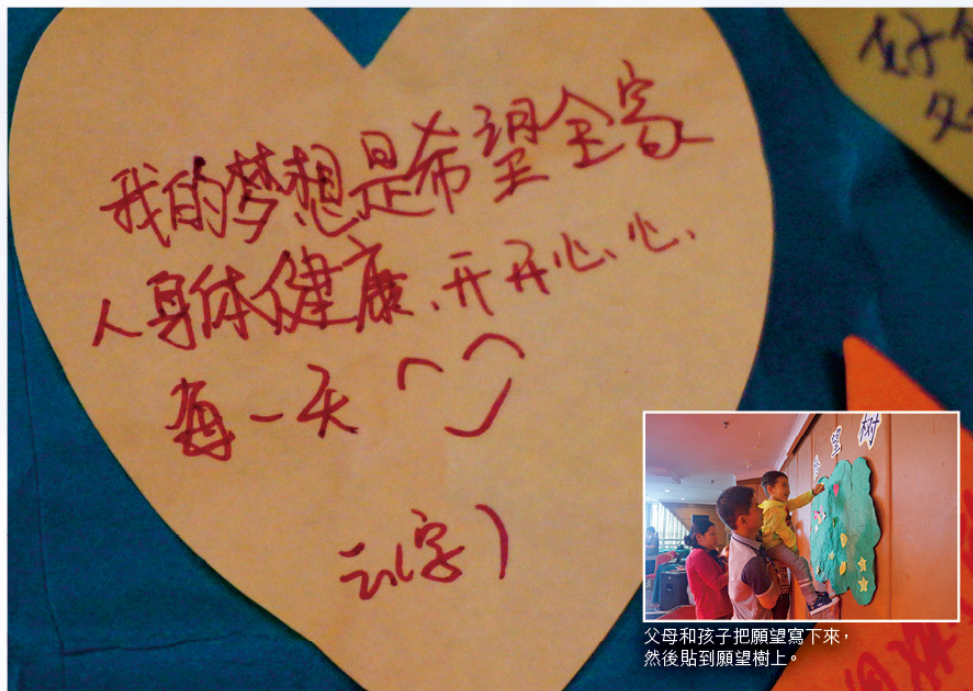 我的梦想是希望全家
人身体健康、开开心心、
每一天
望树
父母和孩子把願望寫下來，
然後貼到願望樹上。